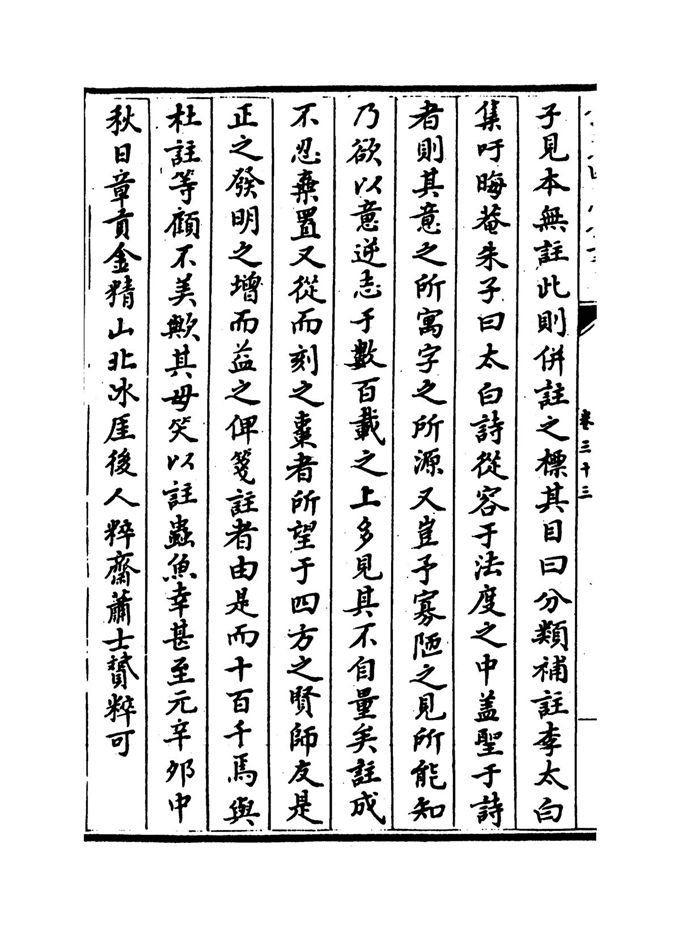 子見本無註此則併註之標其目曰分類補註李太白
集吁晦菴朱子曰太白詩從容于法度之中盖聖于詩
者則其意之所寓字之所源又豈予寡陋之見所能知
乃欲以意逆志于數百載之上多見其不自量矣註成
不忍棄置又從而刻之棗者所望于四方之賢師友是
正之發明之增而益之俾箋註者由是而十百千焉與
杜註等顧不美歟其毋笑以註蟲魚幸甚至元辛夘中
秋日章貢金精山北冰厓後人粹齋蕭士贇粹可
卷三十三